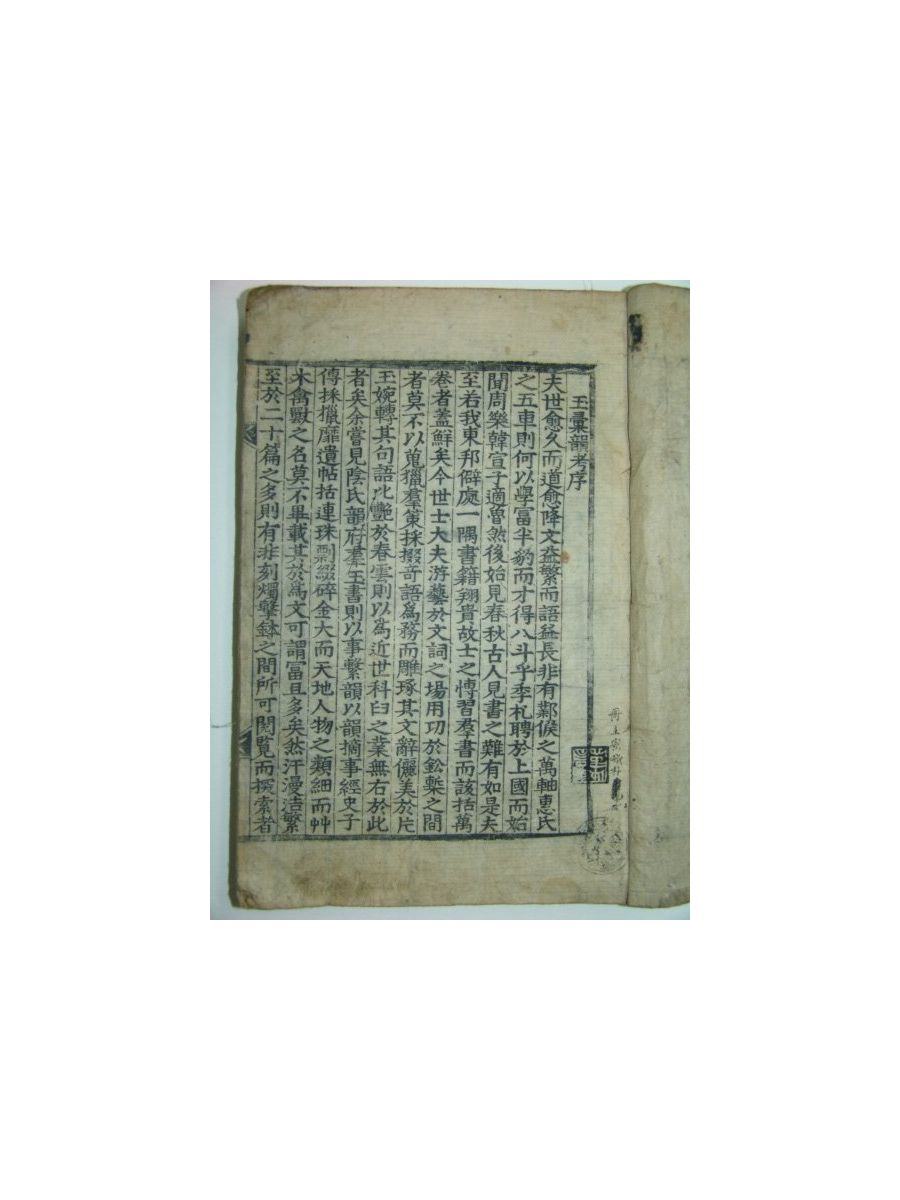 玉彙韻考序
夫世愈久而道愈降文益繁而語益長非有鄴侯之萬軸惠氏
之五車則何以學富半豹而才得八斗乎季札聘於上國而始
聞周樂韓宣子適魯然後始見春秋古人見書之難有如是夫
至若我東邦僻處一隅書籍翔貴故士之愽習羣書而該括萬
卷者蓋鮮矣今世士大夫游藝於文詞之場用功於鈆槧之間
者莫不以蒐獵羣策採掇奇語爲務而雕琢其文辭儷美於片
玉婉轉其句語比艶於春雲則以爲近世科臼之業無右於此
者矣余嘗見陰氏韻府羣玉書則以事繫韻以韻摘事經史子
傳採獵靡遺帖括連珠剽綴碎金大而天地人物之類細而艸
木禽獸之名莫不畢載其於爲文可謂富且多矣然汗漫浩繁
至於二十篇之多則有非刻燭擊鉢之間所可閱覽而探索者